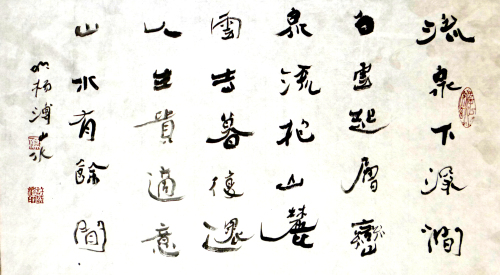 流泉下深澗
白雲起層巒
泉流抱山麓
雲去暮復還
人生貴適意
山水有餘閒
明杨溥